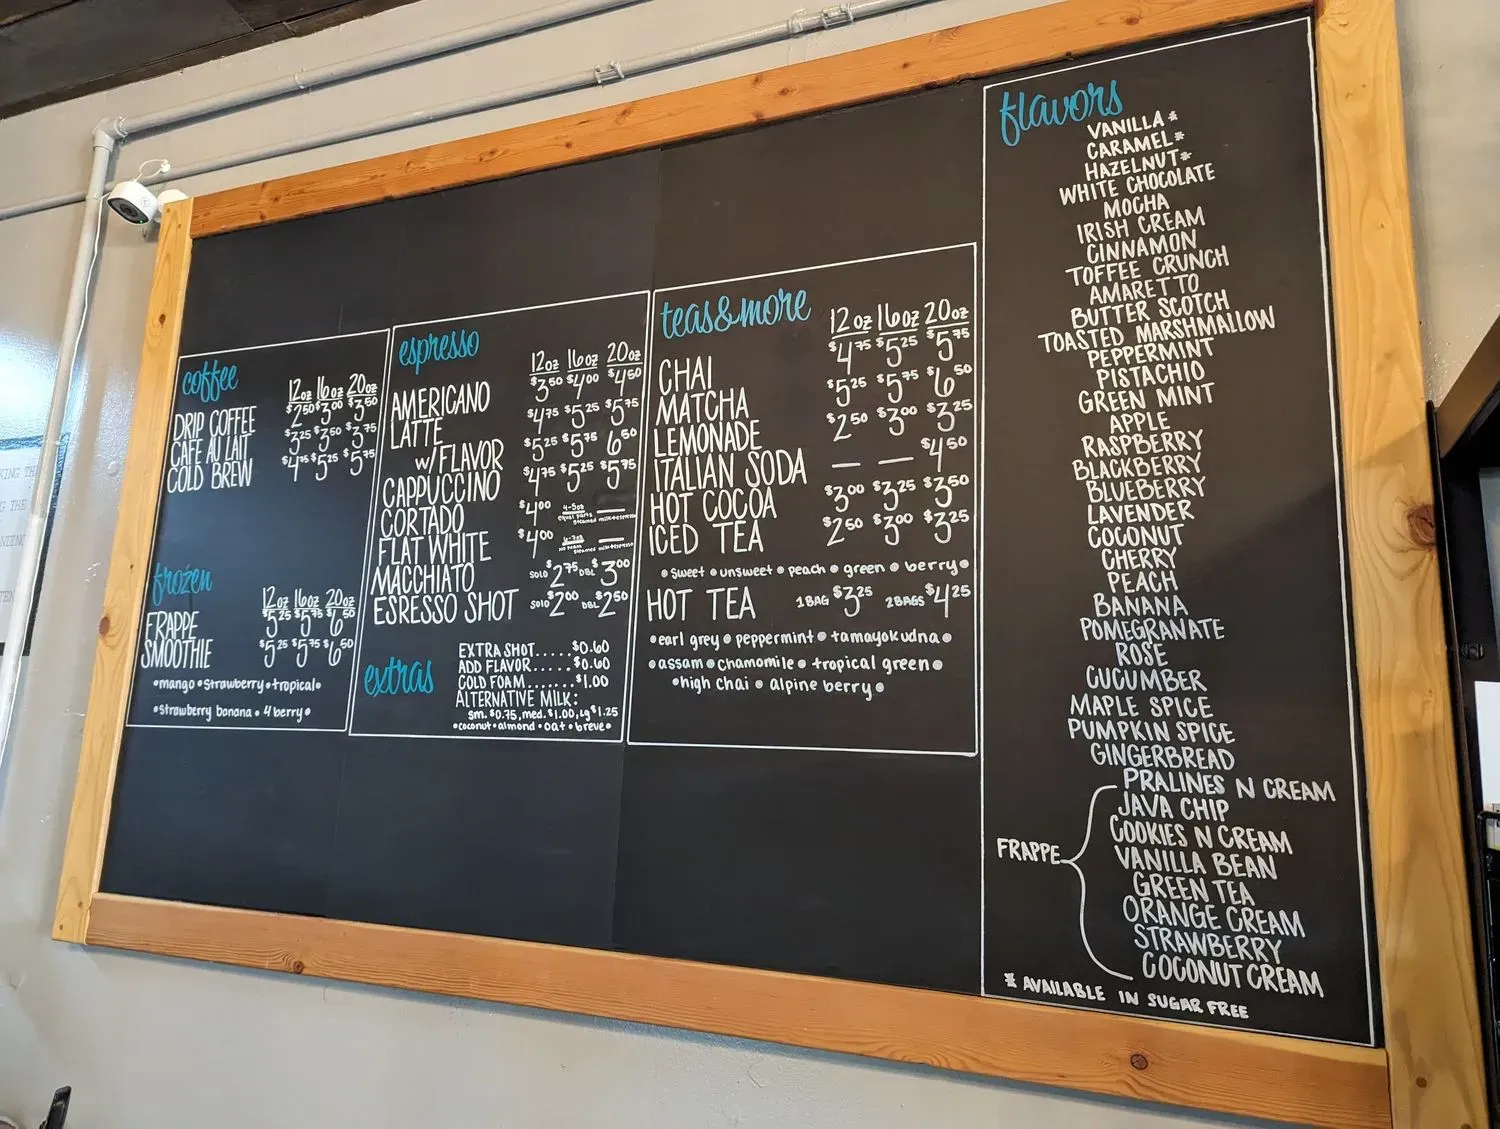 coffee
12oz 16oz 20oz
DRIP COFFEE $2.50 $3.00 $3.50
CAFE AU LAIT $3.25 $3.50 $3.75
COLD BREW $4.75 $5.25 $5.75
frozen
12oz 16oz 20oz
FRAPPE $5.25 $5.75 $6.50
SMOOTHIE $5.25 $5.75 $6.50
•mango •strawberry •tropical•
•strawberry banana • 4 berry•
espresso
12oz 16oz 20oz
AMERICANO $3.50 $4.00 $4.50
LATTE $4.75 $5.25 $5.75
w/FLAVOR $5.25 $5.75 6.50
CAPPUCCINO $4.75 $5.25 $5.75
CORTADO $4.00 4-5oz equal parts steamed milk+espresso
FLAT WHITE $4.00 no foam steamed milk+espresso
MACCHIATO SOLO $2.75 DBL $3.00
ESRESSO SHOT SOLO $2.00 DBL $2.50
extras
EXTRA SHOT.....$0.60
ADD FLAVOR.....$0.60
COLD FOAM.......$1.00
ALTERNATIVE MILK:
sm. $0.75, med. $1.00, lg $1.25
•coconut •almond •oat •breve•
teas&more
12oz 16oz 20oz
CHAI $4.75 $5.25 $5.75
MATCHA $5.25 $5.75 $6.50
LEMONADE $2.50 $3.00 $3.25
ITALIAN SODA — — $4.50
HOT COCOA $3.00 $3.25 $3.50
ICED TEA $2.50 $3.00 $3.25
•sweet •unsweet •peach •green •berry•
HOT TEA 1BAG $3.25 2BAGS $4.25
•earl grey •peppermint •tamayokudna•
•assam •chamomile •tropical green•
•high chai • alpine berry•
flavors
VANILLA*
CARAMEL*
HAZELNUT*
WHITE CHOCOLATE
MOCHA
IRISH CREAM
CINNAMON
TOFFEE CRUNCH
AMARETTO
BUTTER SCOTCH
TOASTED MARSHMALLOW
PEPPERMINT
PISTACHIO
GREEN MINT
APPLE
RASPBERRY
BLACKBERRY
BLUEBERRY
LAVENDER
COCONUT
CHERRY
PEACH
BANANA
POMEGRANATE
ROSE
CUCUMBER
MAPLE SPICE
PUMPKIN SPICE
GINGERBREAD
FRAPPE
PRALINES N CREAM
JAVA CHIP
COOKIES N CREAM
VANILLA BEAN
GREEN TEA
ORANGE CREAM
STRAWBERRY
COCONUT CREAM
* AVAILABLE IN SUGAR FREE